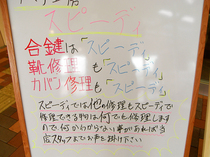 スピーディ
合鍵は「スピーディ」
靴修理も「スピーディ」
カバン修理も「スピーディ」
スピーディでは他の修理もスピーディで
修理できる物は何でも修理します
ので何かわからない事があれば当
店スタッフまでお声を掛け下さい